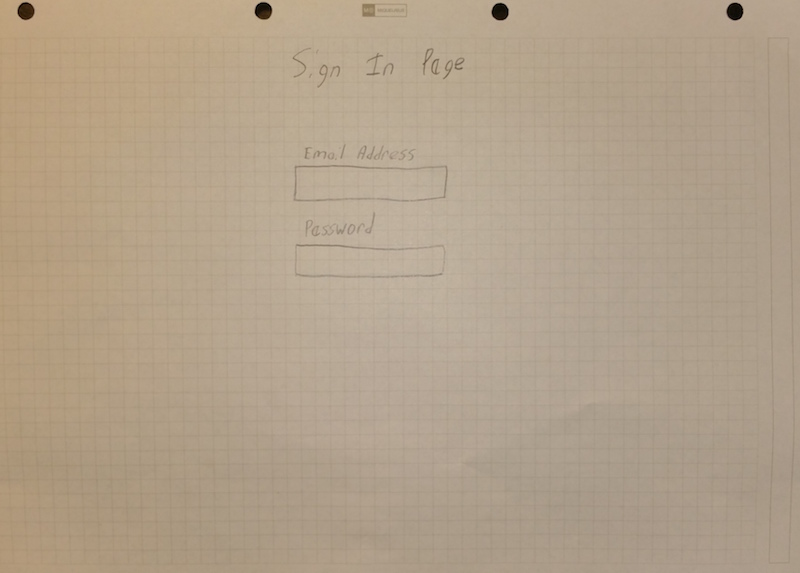 Sign In Page
Email Address
Password